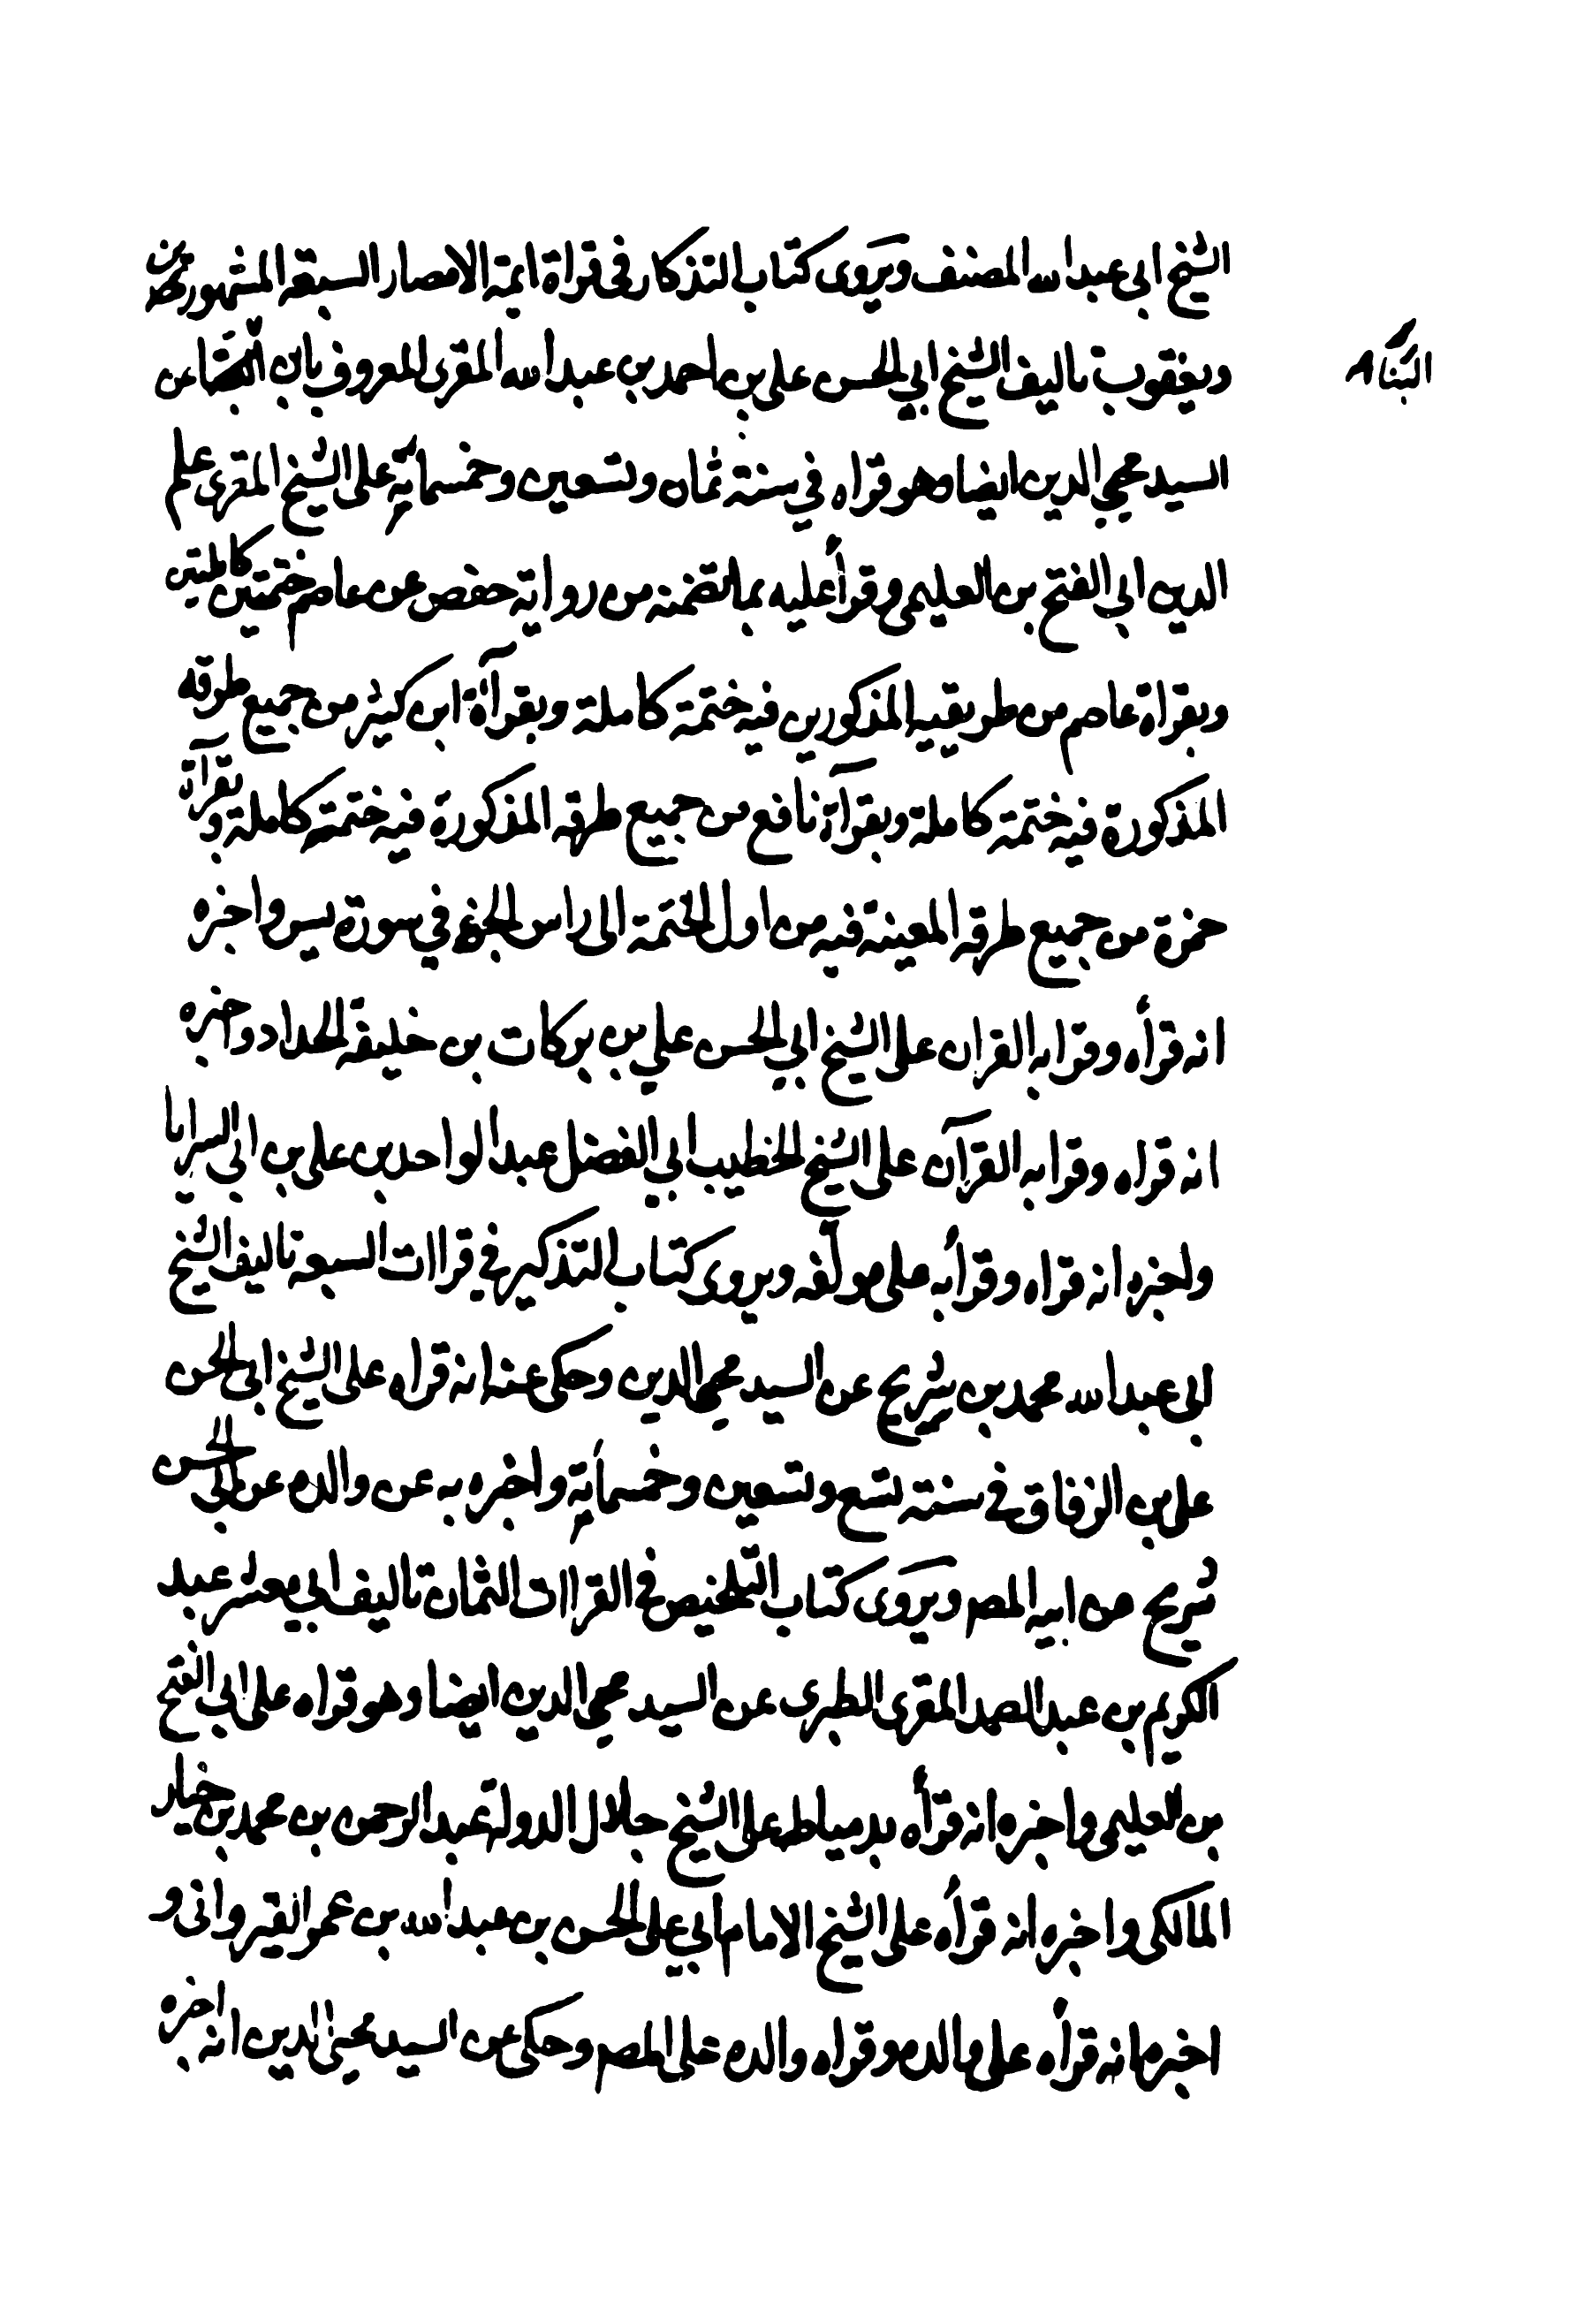 الشيخ ابي عبد الله المصنف ويَروى كتاب التذكار في قراة ايمة الامصار السبعة المشهورين
ويعقوب تاليف الشيخ ابي الحسن علي بن احمد بن عبد الله المقرى المعروف بابن عن
البنا
السيد محيي الدين ايضا وهو قراه في سنة ثمان وتسعين وخمسمائة على الشيخ المقرى علم
الدين ابي الفتح بن العليمي وقرأ عليه بما تضمنه من رواية حفص عن عاصم ختمتين كاملتين
وبقراة عاصم من طريقيه المذكورين فيه ختمة كاملة وبقرآة ابن كثير من جميع طرقه
المذكورة فيه ختمة كاملة وبقرآة نافع من جميع طرقه المذكورة فيه ختمة كاملة وبقرآة
حمزة من جميع طرقه المعينة فيه من اول الختمة الى راس الجزء في سورة يس واخبره
انه قرأه وقرا به القران على الشيخ ابي الحسن علي بن بركات بن خليفة الحداد واخبره
انه قراه وقرا به القرآن على الشيخ الخطيب ابي الفضل عبد الواحد بن علي بن ابي السرايا
واخبره انه قراه وقرأ به على مولفه ويروى كتاب التذكير في قراات السبعة تاليف الشيخ
ابي عبد الله محمد بن شريح عن السيد محيي الدين وحكى عنه انه قراه على الشيخ ابي الحسن
علي بن الزقاق في سنة تسع وتسعين وخمسمأية واخبره به عن والده عن ابي الحسن
شريح عن ابيه المص ويَروَى كتاب التلخيص في القراات الثمان تاليف ابي معشر عبد
الكريم بن عبد الصمد المقرى الطبرى عن السيد محيي الدين ايضا وهو قراه على ابي الفتح
بن العليمي واخبره انه قرأه بدمياط على الشيخ جلال الدولة عبد الرحمن بن محمد بن خيار
المالكى واخبره انه قرأه على الشيخ الامام ابي علي الحسن بن عبد الله بن عمر القيرواني و
اخبره انه قرأه على والده وقراه والده على المص وحكى عن السيد محيي الدين انه اخبره